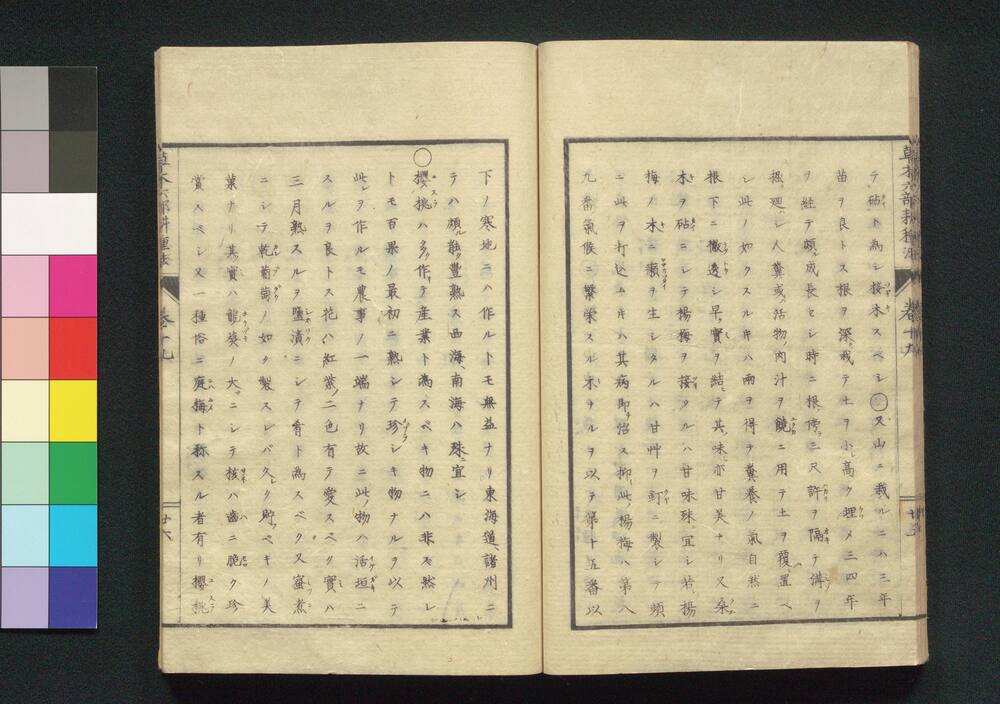 草木六部耕種法 卷十九
テ砧ト為シ接木スベシ〇又山ニ栽ルニハ三年
苗ヲ良トス根ヲ深ク栽テ土ヲ小シ高ク埋メ三四年
ヲ経テ頗ル成長セシ時ニ根ノ傍ニ二尺許ヲ隔テ溝ヲ
掘廻シ人糞或ハ活物ノ肉汁ヲ饒ニ用テ土ヲ覆ヒ置ベ
シ此ノ如クスルキハ雨ヲ得テ糞養ノ氣自然ニ
根下ニ徹透シ早ク實ヲ結テ其味亦甘美ナリ又桑
木ヲ砧ニシテ楊梅ヲ接タルハ甘味殊ニ宜シ若シ楊
梅ノ木ニ癩ヲ生シタルハ甘草ヲ釘ニ製シテ頻
ニ此ヲ打込ムキハ其病即治ス抑此楊梅ハ第八
九番氣候ニ繁榮スル木ナルヲ以テ第十五番以
下ノ寒地ニハ作ルトモ無益ナリ東海道諸州ニ
テハ頗ル能ク豊熟ス西海南海ハ殊ニ宜シ
〇櫻桃ハ多ク作テ産業ト為スベキ物ニハ非ズ然レ
トモ百果ノ最初ニ熟シテ珍シキ物ナルヲ以テ
此ヲ作ルモ農事ノ一端ナリ故ニ此ノ物ハ活垣ニ
スルヲ良トス花ハ紅紫ノ二色有テ愛スベク實ハ
三月熟スルヲ鹽漬ニシテ肴ト為スベク又蜜煮
ニシテ乾葡萄ノ如ク製スレバ久ク貯フベキノ美
菓ナリ其實ハ龍葵ノ大サニシテ核ハ齒ニ脆ク珍
賞スベシ又一種俗ニ庭梅ト称スル者有リ櫻桃
草木六部耕種法 卷十九 廿六